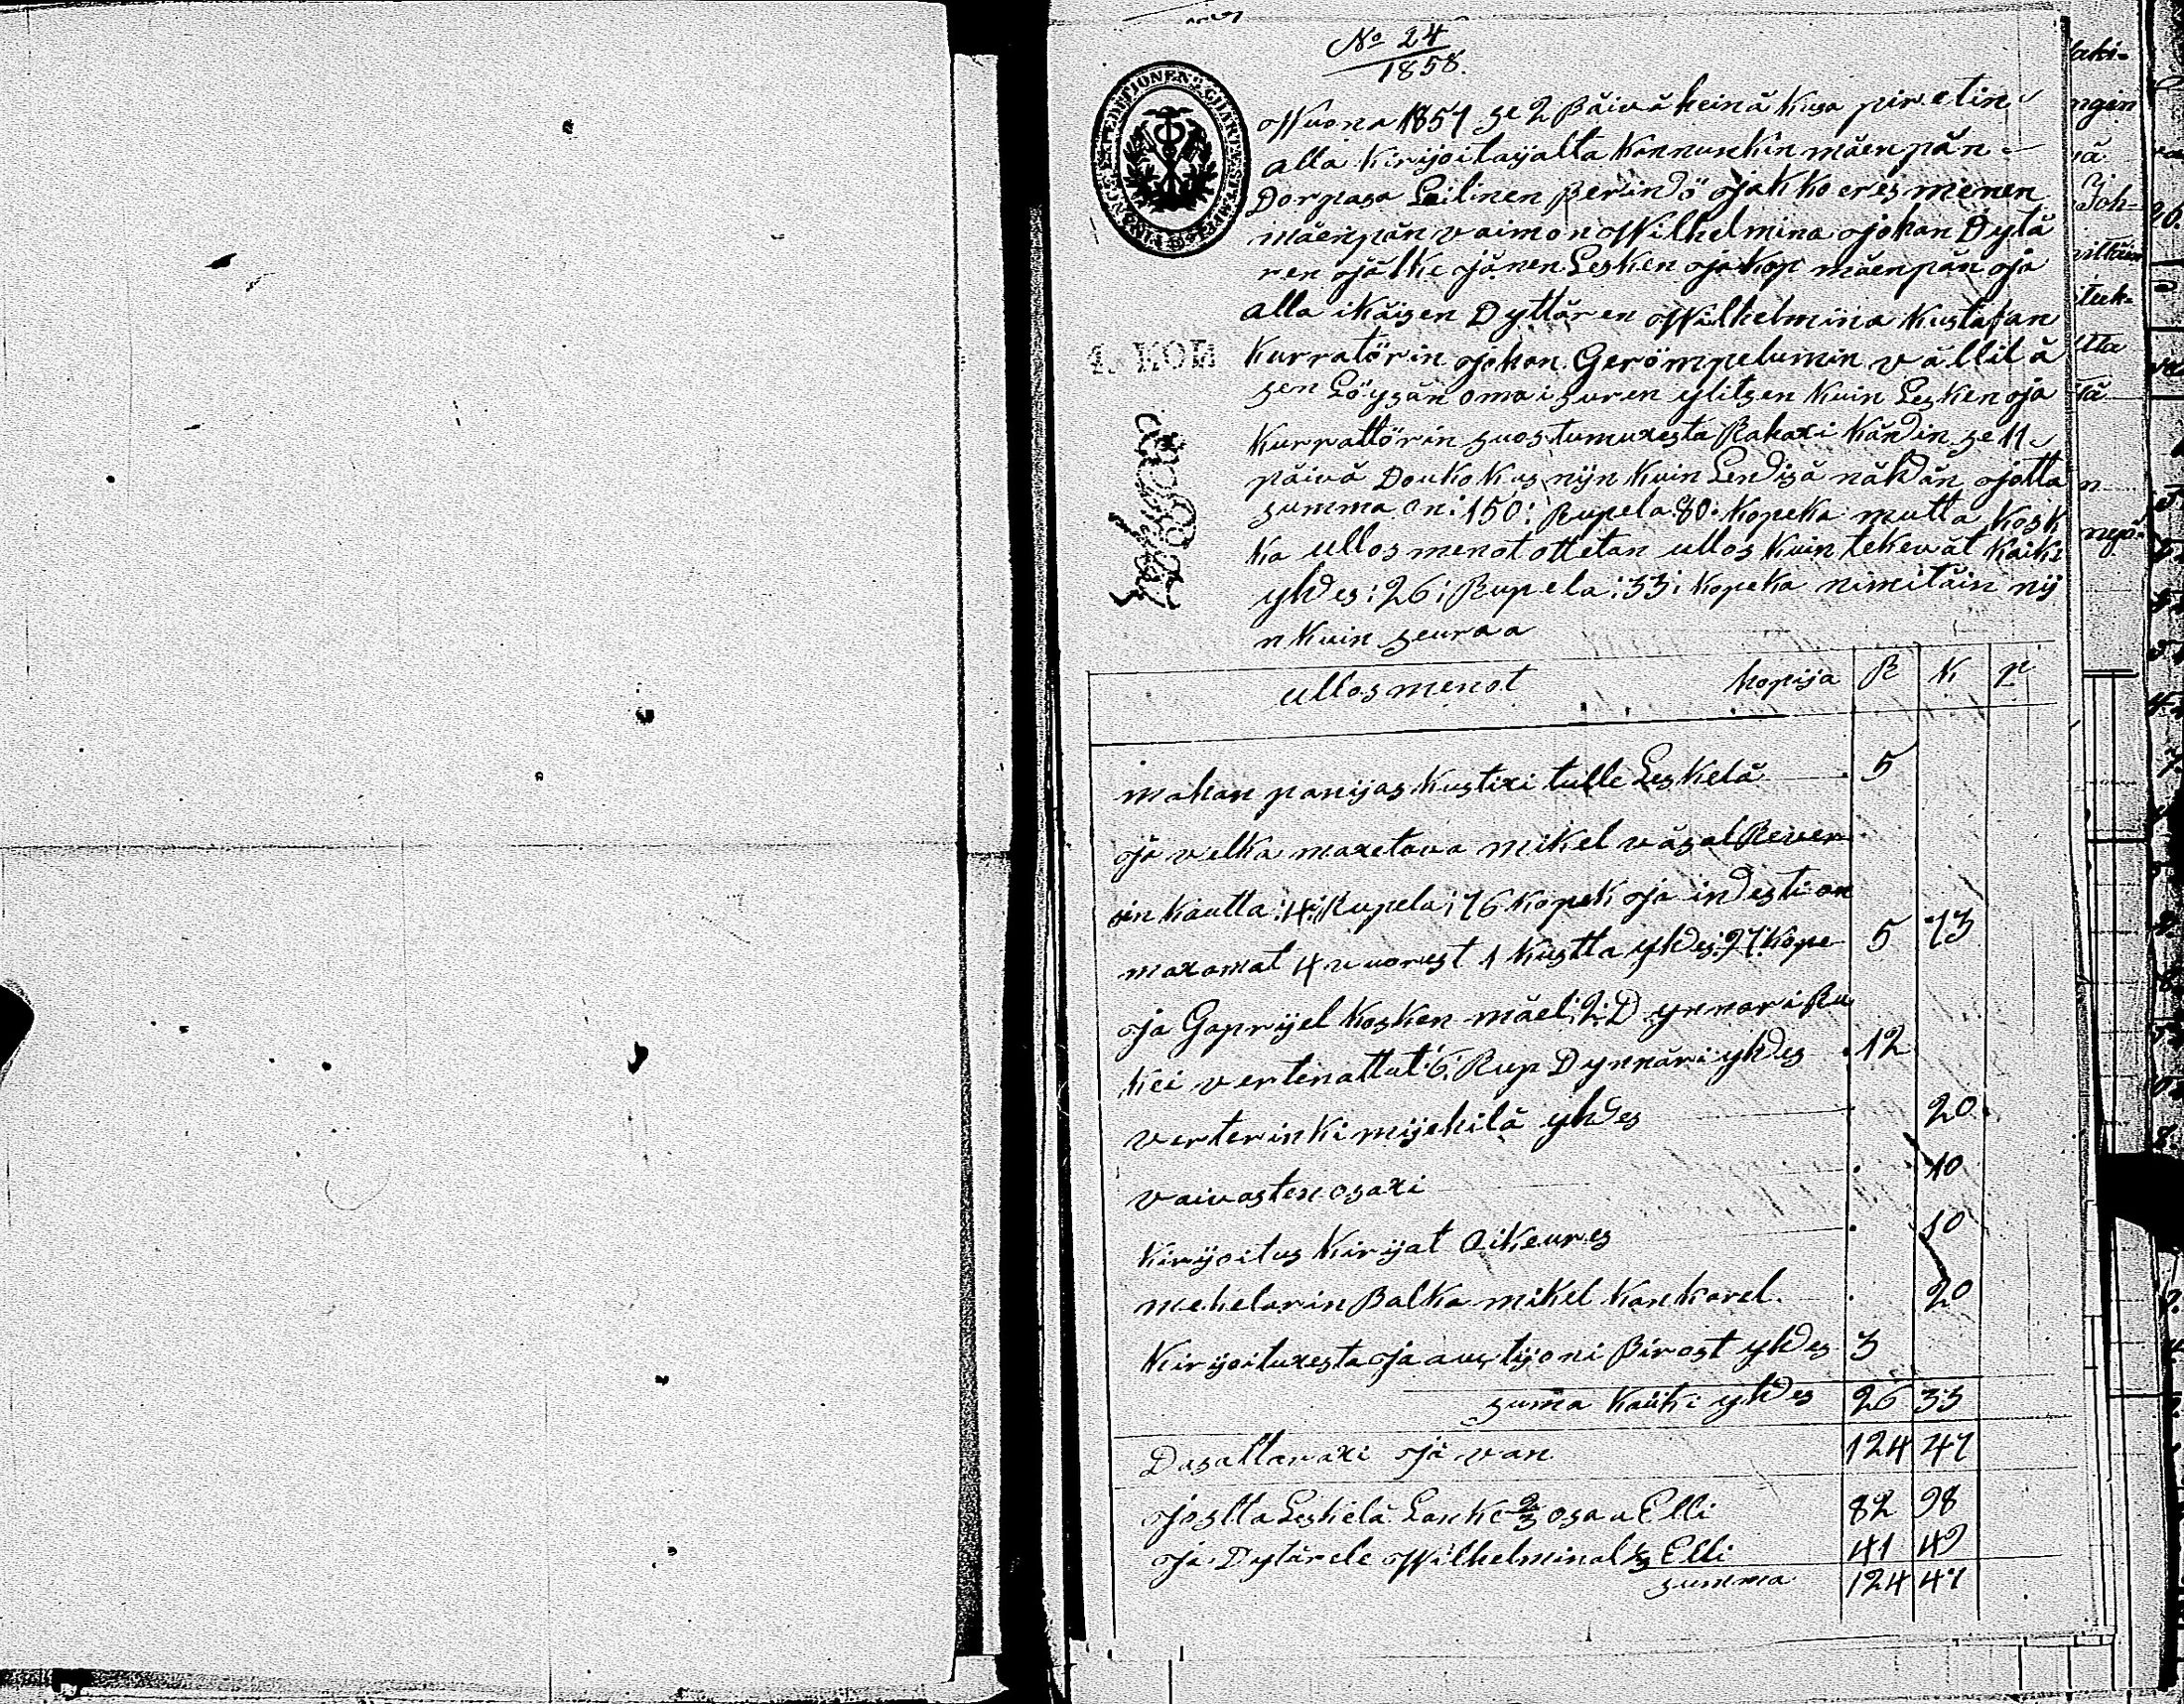 No 24
1858.
FINANCE-EXPEDITIONENS CHARTÆ STEMPEL
Wuona 1857 se 2 Päivä heinä Kusa piretin
alla Kirijoitaijalta Kannunkin mäenpän
Dorpasa Laillinen Perindö ojakko eresmenen
mäenpän vaimon Wilhelmina ojohan Dytä
ren ojälke ojänen Lesken ojakop mäenpän oja
alla ikäisen Dyttären Wilhelmiina Kustafan
Kurratörin ojohan Gerömpelumin vällilä
sen Löysän omaisuren ylitsen Kuin Lesken oja
Kurrattörin suostumuxesta Rahaxi Kändin se 11
päivä Douko Kus nijn Kuin Lendisä nähdän ojotta
summa on: 150: Rupela 80: Kopeka mutta Kosk
Ka ullos menot ottetan ullos Kuin tekewät Kaiki
yhdes: 26: Rupela: 33: Kopeka nimitäin nij
n Kuin seuraa
4. KOP.
ullos menot Kopija R K p
mahan panijas Kustixi tulle Leskelä 5
oja velka maxetava mikel väsal Reven
sin kautta: 4: Rupela: 76 Kopek oja indesti on
maxamat 4 vuorest 1 Kustta yhdes: 97: Kope 5 73
oja Gaprijel Kosken mäel: 2: D ynnari Ru
Kei vertenattut: 6: Rup Dynnäri yhdes 12
verterinki mijehilä yhdes 20
vaivasten osaxi 10
Kirijoitus Kirijat Oikeures 10
mekelarin Palka mikel Kankarel 20
Kirijoituxesta oja auxtijoni Pirost yhdes 3
suma kaiki yhdes 26 33
Dasattavaxi ojä van 124 47
ojostta Leskelä Lanke 2/3 osa u Elli 82 98
oja Dytärele Wilhelminal 1/3 Elli 41 49
summa 124 47